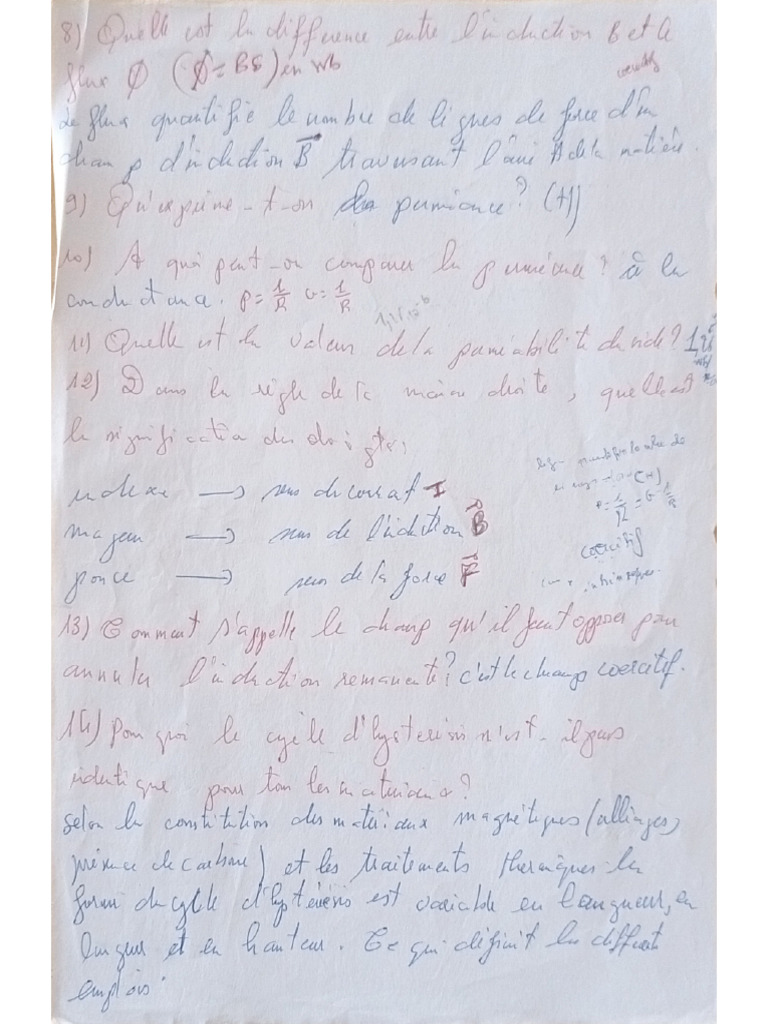 8) Quelle est la différence entre l'induction B et le
flux Ø (Ø = BS) en Wb
Le flux quantifie le nombre de lignes de force d'un
champ d'induction B traversant l'aire A de la matière.
9) Qu'exprime-t-on la perméance? (H)
10) A quoi peut-on comparer la perméance? à la
conductance. P = 1/R G = 1/R
11) Quelle est la valeur de la perméabilité du vide?
12) Dans la règle de la main droite, quelle est
la signification des doigts;
indexe → sens du courant I
majeur → sens de l'induction B
pouce → sens de la force F
coercitif
13) Comment s'appelle le champ qu'il faut opposer pour
annuler l'induction remanente? c'est le champ coercitif.
14) Pourquoi le cycle d'hysterisis n'est-il pas
identique pour tous les materiaux?
Selon la constitution des matériaux magnétiques (alliages,
présence de carbone) et les traitements thermiques la
forme du cycle d'hystérésis est variable en longueur, en
largeur et en hauteur. Ce qui définit les différents
emplois.